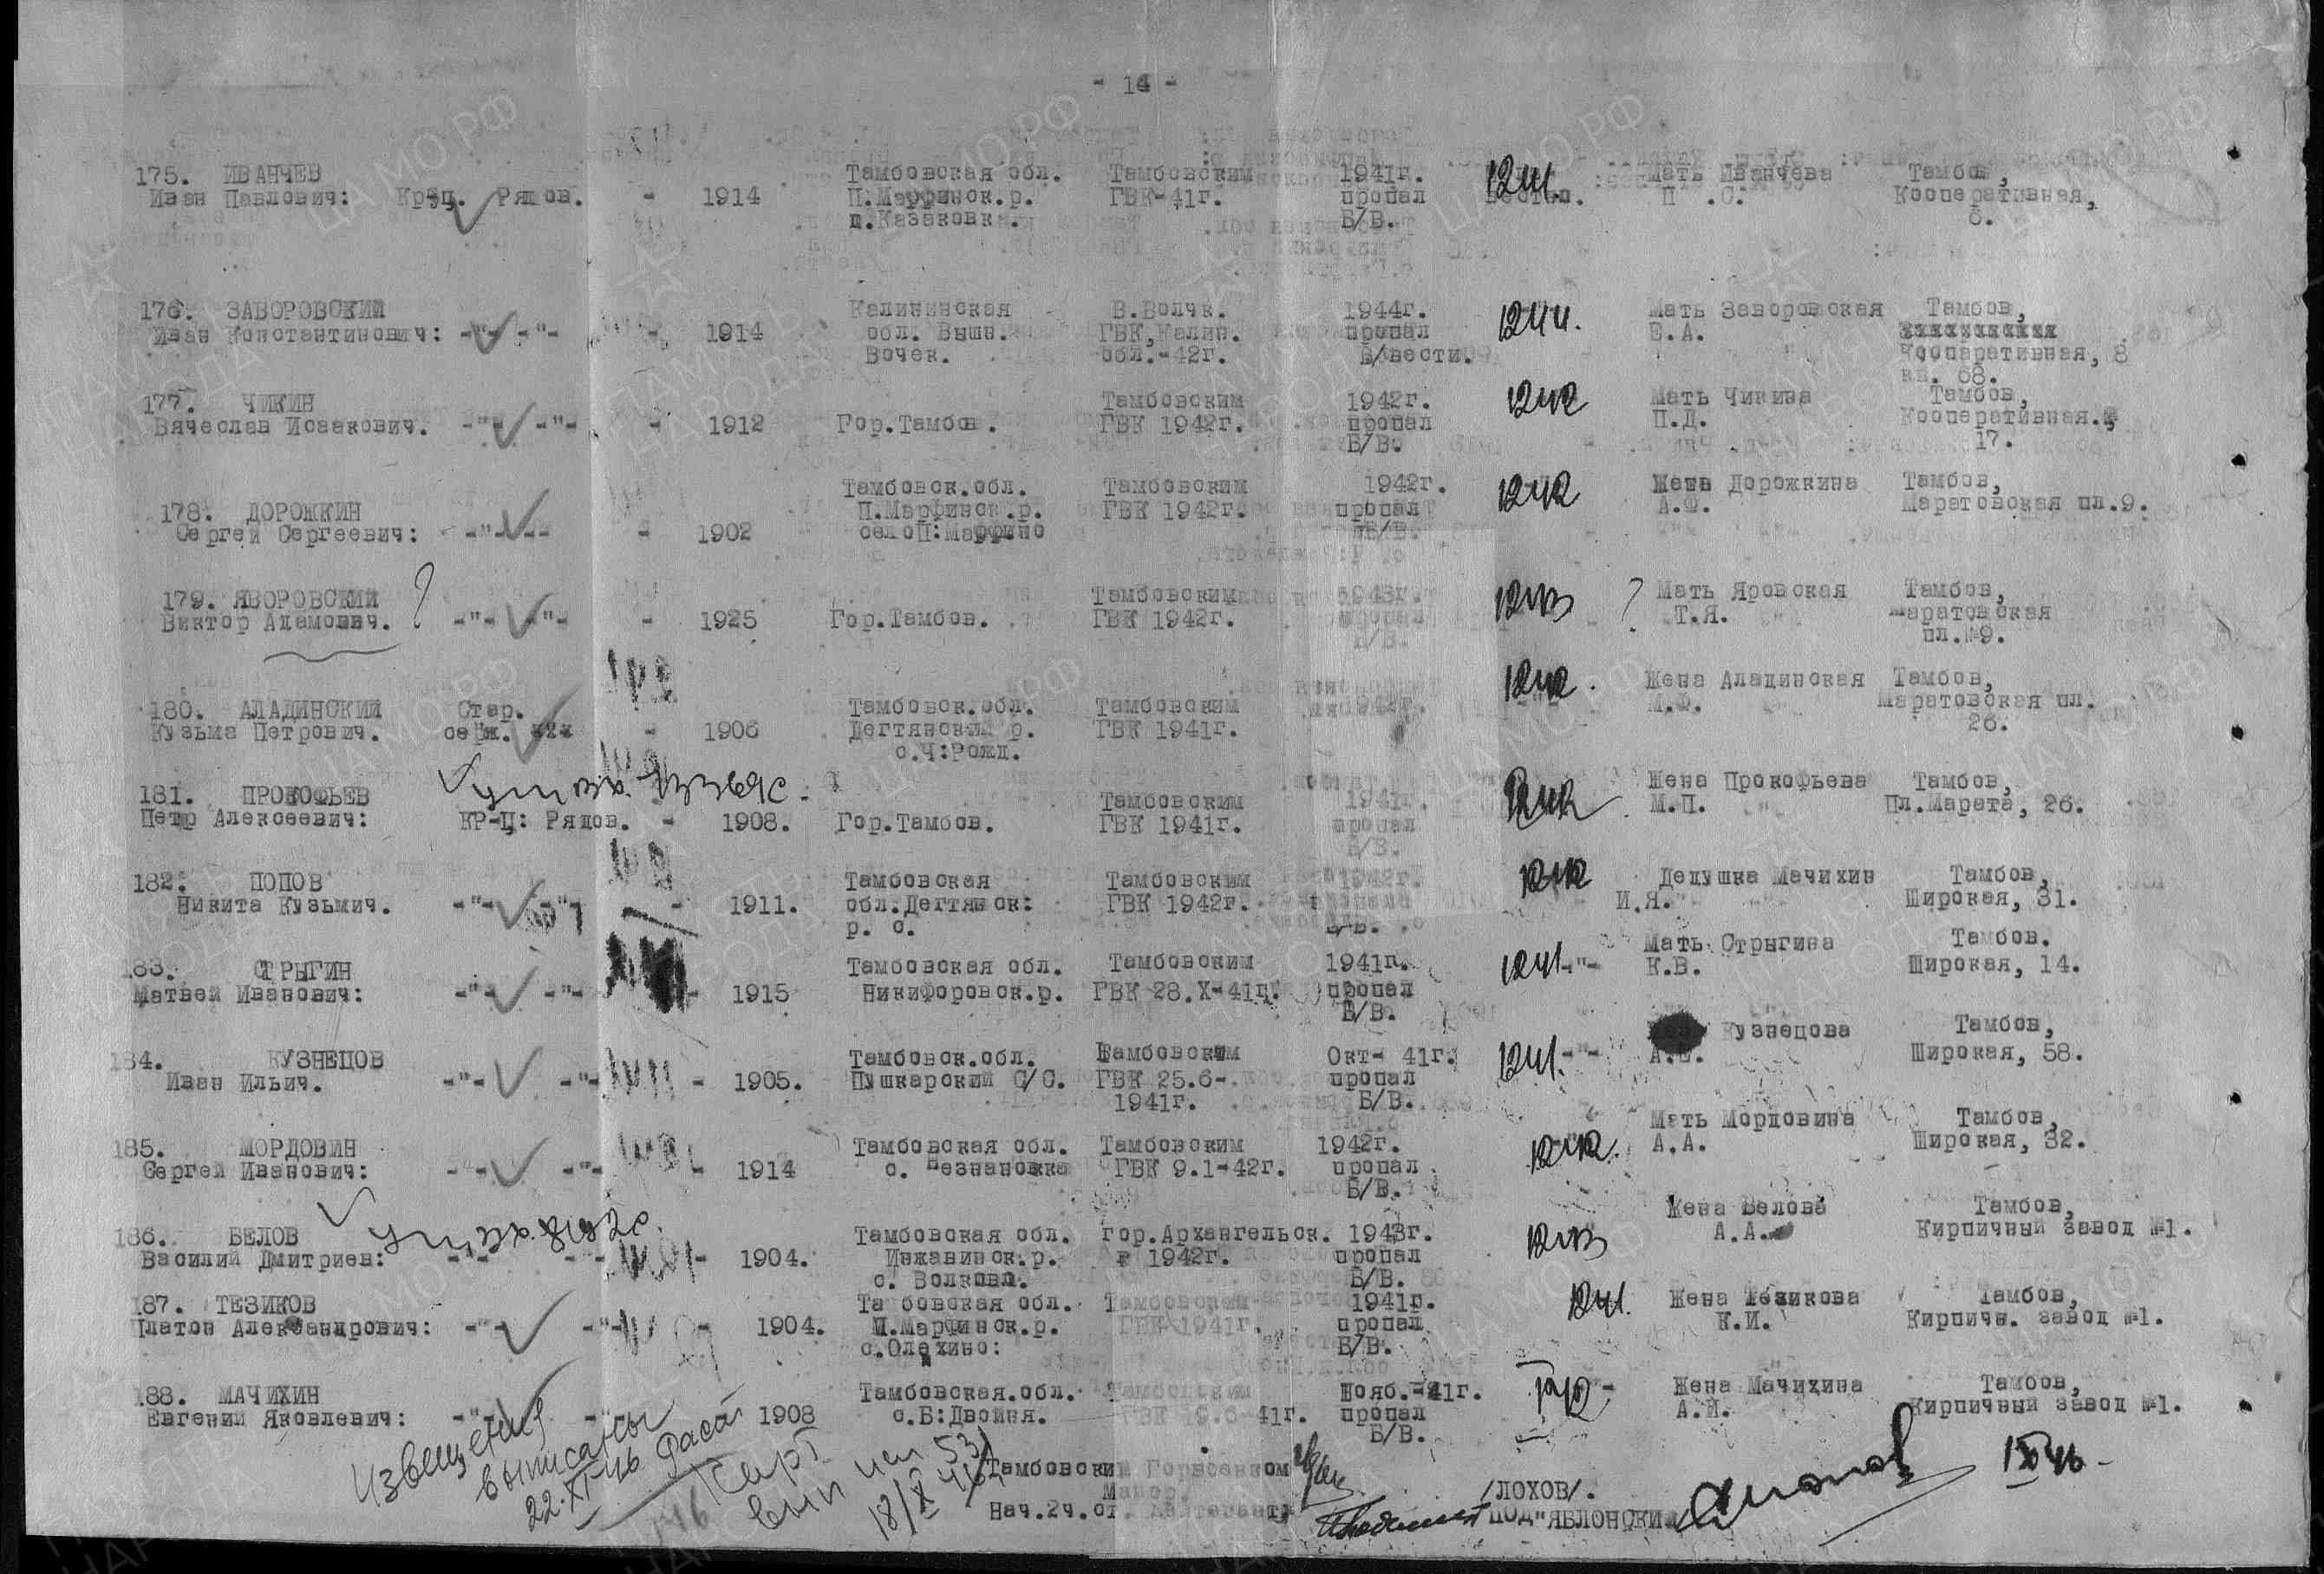 - 14 -
175. ИВАНЧЕВ Тамбовская обл. Тамбовским 1941г. 12.41. Мать Иванчева Тамбов,
Иван Павлович: Кр-ц. Рядов. - 1914 П:Марфинск.р. ГВК-41г. пропал П .С. Кооперативная,
д.Казаковка. Б/В. 6.
176. ЗАВОРОВСКИЙ Калининская В.Волчк. 1944г. 12.44. Мать Заворовская Тамбов,
Иван Константинович: -"- -"- - 1914 обл. Вышн. ГВК,Калин. пропал Е.А.
Вочек. обл.-42г. Б/вести. Кооперативная, 8
кв. 68.
177. ЧИКИН Тамбовским 1942г. 12.42 Мать Чикина Тамбов,
Вячеслав Исаакович. -"- -"- - 1912 Гор.Тамбов. ГВК 1942г. пропал П.Д. Кооперативная.
Б/В. 17.
Тамбовск.обл. Тамбовским 1942г. 12.42 Жена Дорожкина Тамбов,
178. ДОРОЖКИН П.Марфинск.р. ГВК 1942г. пропал А.Ф. Маратовская пл.9.
Сергей Сергеевич: -"- -- - 1902 село П:Марфино Б/В.
179. ЯВОРОВСКИЙ ? Тамбовским 1943г. 12.43 ? Мать Яровская Тамбов,
Виктор Адамович. -"- -"- - 1925 Гор.Тамбов. ГВК 1942г. пропал Т.Я. Маратовская
Б/В. пл.№9.
180. АЛАДИНСКИЙ Стар. Тамбовск.обл. Тамбовским 1942г. 12.42. Жена Аладинская Тамбов,
Кузьма Петрович. серж. - 1906 Дегтянский р. ГВК 1941г. М.Ф. Маратовская пл.
с.Ч:Рожд. 26.
181. ПРОКОФЬЕВ Тамбовским 1941г. Жена Прокофьева Тамбов,
Петр Алексеевич: КР-Ц: Рядов. - 1908. Гор.Тамбов. ГВК 1941г. пропал М.П. Пл.Марата, 26.
Б/В.
182. ПОПОВ Тамбовская Тамбовским 1942г. 12.42 Дедушка Мачихин Тамбов,
Никита Кузьмич. -"- -"- - 1911. обл.Дегтянск: ГВК 1942г. пропал И.Я. Широкая, 31.
р. с. Б/В.
183. СТРЫГИН Тамбовская обл. Тамбовским 1941г. 12.41. -"- Мать Стрыгина Тамбов.
Матвей Иванович: -"- -"- - 1915 Никифоровск.р. ГВК 28.X-41г. пропал К.В. Широкая, 14.
Б/В.
184. КУЗНЕЦОВ Тамбовск.обл. Тамбовским Окт- 41г. 12.41. -"- Кузнецова Тамбов,
Иван Ильич. -"- -"- - 1905. Пушкарский С/С. ГВК 25.6-. пропал Широкая, 58.
1941г. Б/В.
185. МОРДОВИН Тамбовская обл. Тамбовским 1942г. 12.42. Мать Мордовина Тамбов,
Сергей Иванович: -"- -"- - 1914 с. Незнановка ГВК 9.1-42г. пропал А.А. Широкая, 32.
Б/В.
186. БЕЛОВ Тамбовская обл. гор.Архангельск. 1943г. 12.43 Жена Белова Тамбов,
Василий Дмитриев: -"- -"- - 1904. Инжавинск.р. в 1942г. пропал А.А. Кирпичный завод №1.
с. Волкова. Б/В.
187. ТЕЗИКОВ Та бовская обл. Тамбовским 1941г. 12.41. Жена Тезикова Тамбов,
Платон Александрович: -"- -"- - 1904. П.Марфинск.р. ГВК 1941г. пропал К.И. Кирпичн. завод №1.
с.Олехино: Б/В.
188. МАЧИХИН Тамбовская.обл. Тамбовским Нояб.-41г. Жена Мачихина Тамбов,
Евгений Яковлевич: -"- -"- 1908 с.Б:Двойня. ГВК 41г. пропал А.И. Кирпичный завод №1.
Б/В.
Извещения
выписаны
22.XI-46
18/X 46
Тамбовский Горвоенком
Майор /ЛОХОВ/.
Нач.2ч.ст. лейтенант ПОД"ЯБЛОНСКИЙ